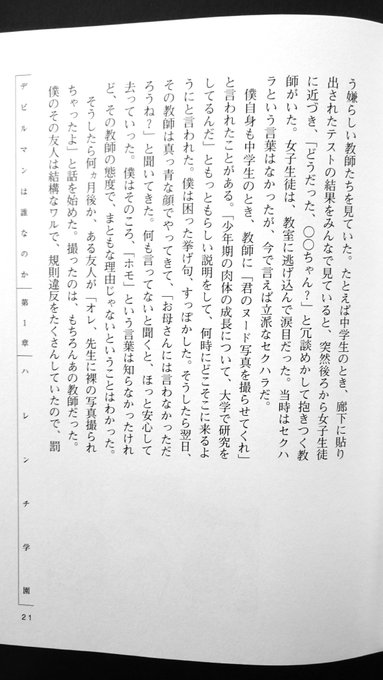 う嫌らしい教師たちを見ていた。たとえば中学生のとき、廊下に貼り
出されたテストの結果をみんなで見ていると、突然後ろから女子生徒
に近づき、「どうだった、〇〇ちゃん?」と冗談めかして抱きつく教
師がいた。女子生徒は、教室に逃げ込んで涙目だった。当時はセクハ
ラという言葉はなかったが、今で言えば立派なセクハラだ。
僕自身も中学生のとき、教師に「君のヌード写真を撮らせてくれ」
と言われたことがある。「少年期の肉体の成長について、大学で研究を
してるんだ」ともっともらしい説明をして、何時にどこそこに来るよ
うにと言われた。僕は困った挙げ句、すっぽかした。そうしたら翌日、
その教師は真っ青な顔でやってきて、「お母さんには言わなかっただ
ろうね?」と聞いてきた。何も言ってないと聞くと、ほっと安心して
去っていった。僕はそのころ、「ホモ」という言葉は知らなかったけれ
ど、その教師の態度で、まともな理由じゃないということはわかった。
そうしたら何ヵ月後か、ある友人が「オレ、先生に裸の写真撮られ
ちゃったよ」と話を始めた。撮ったのは、もちろんあの教師だった。
僕のその友人は結構なワルで、規則違反をたくさんしていたので、罰
デビルマンは誰なのか 第1章 ハレンチ学園
21